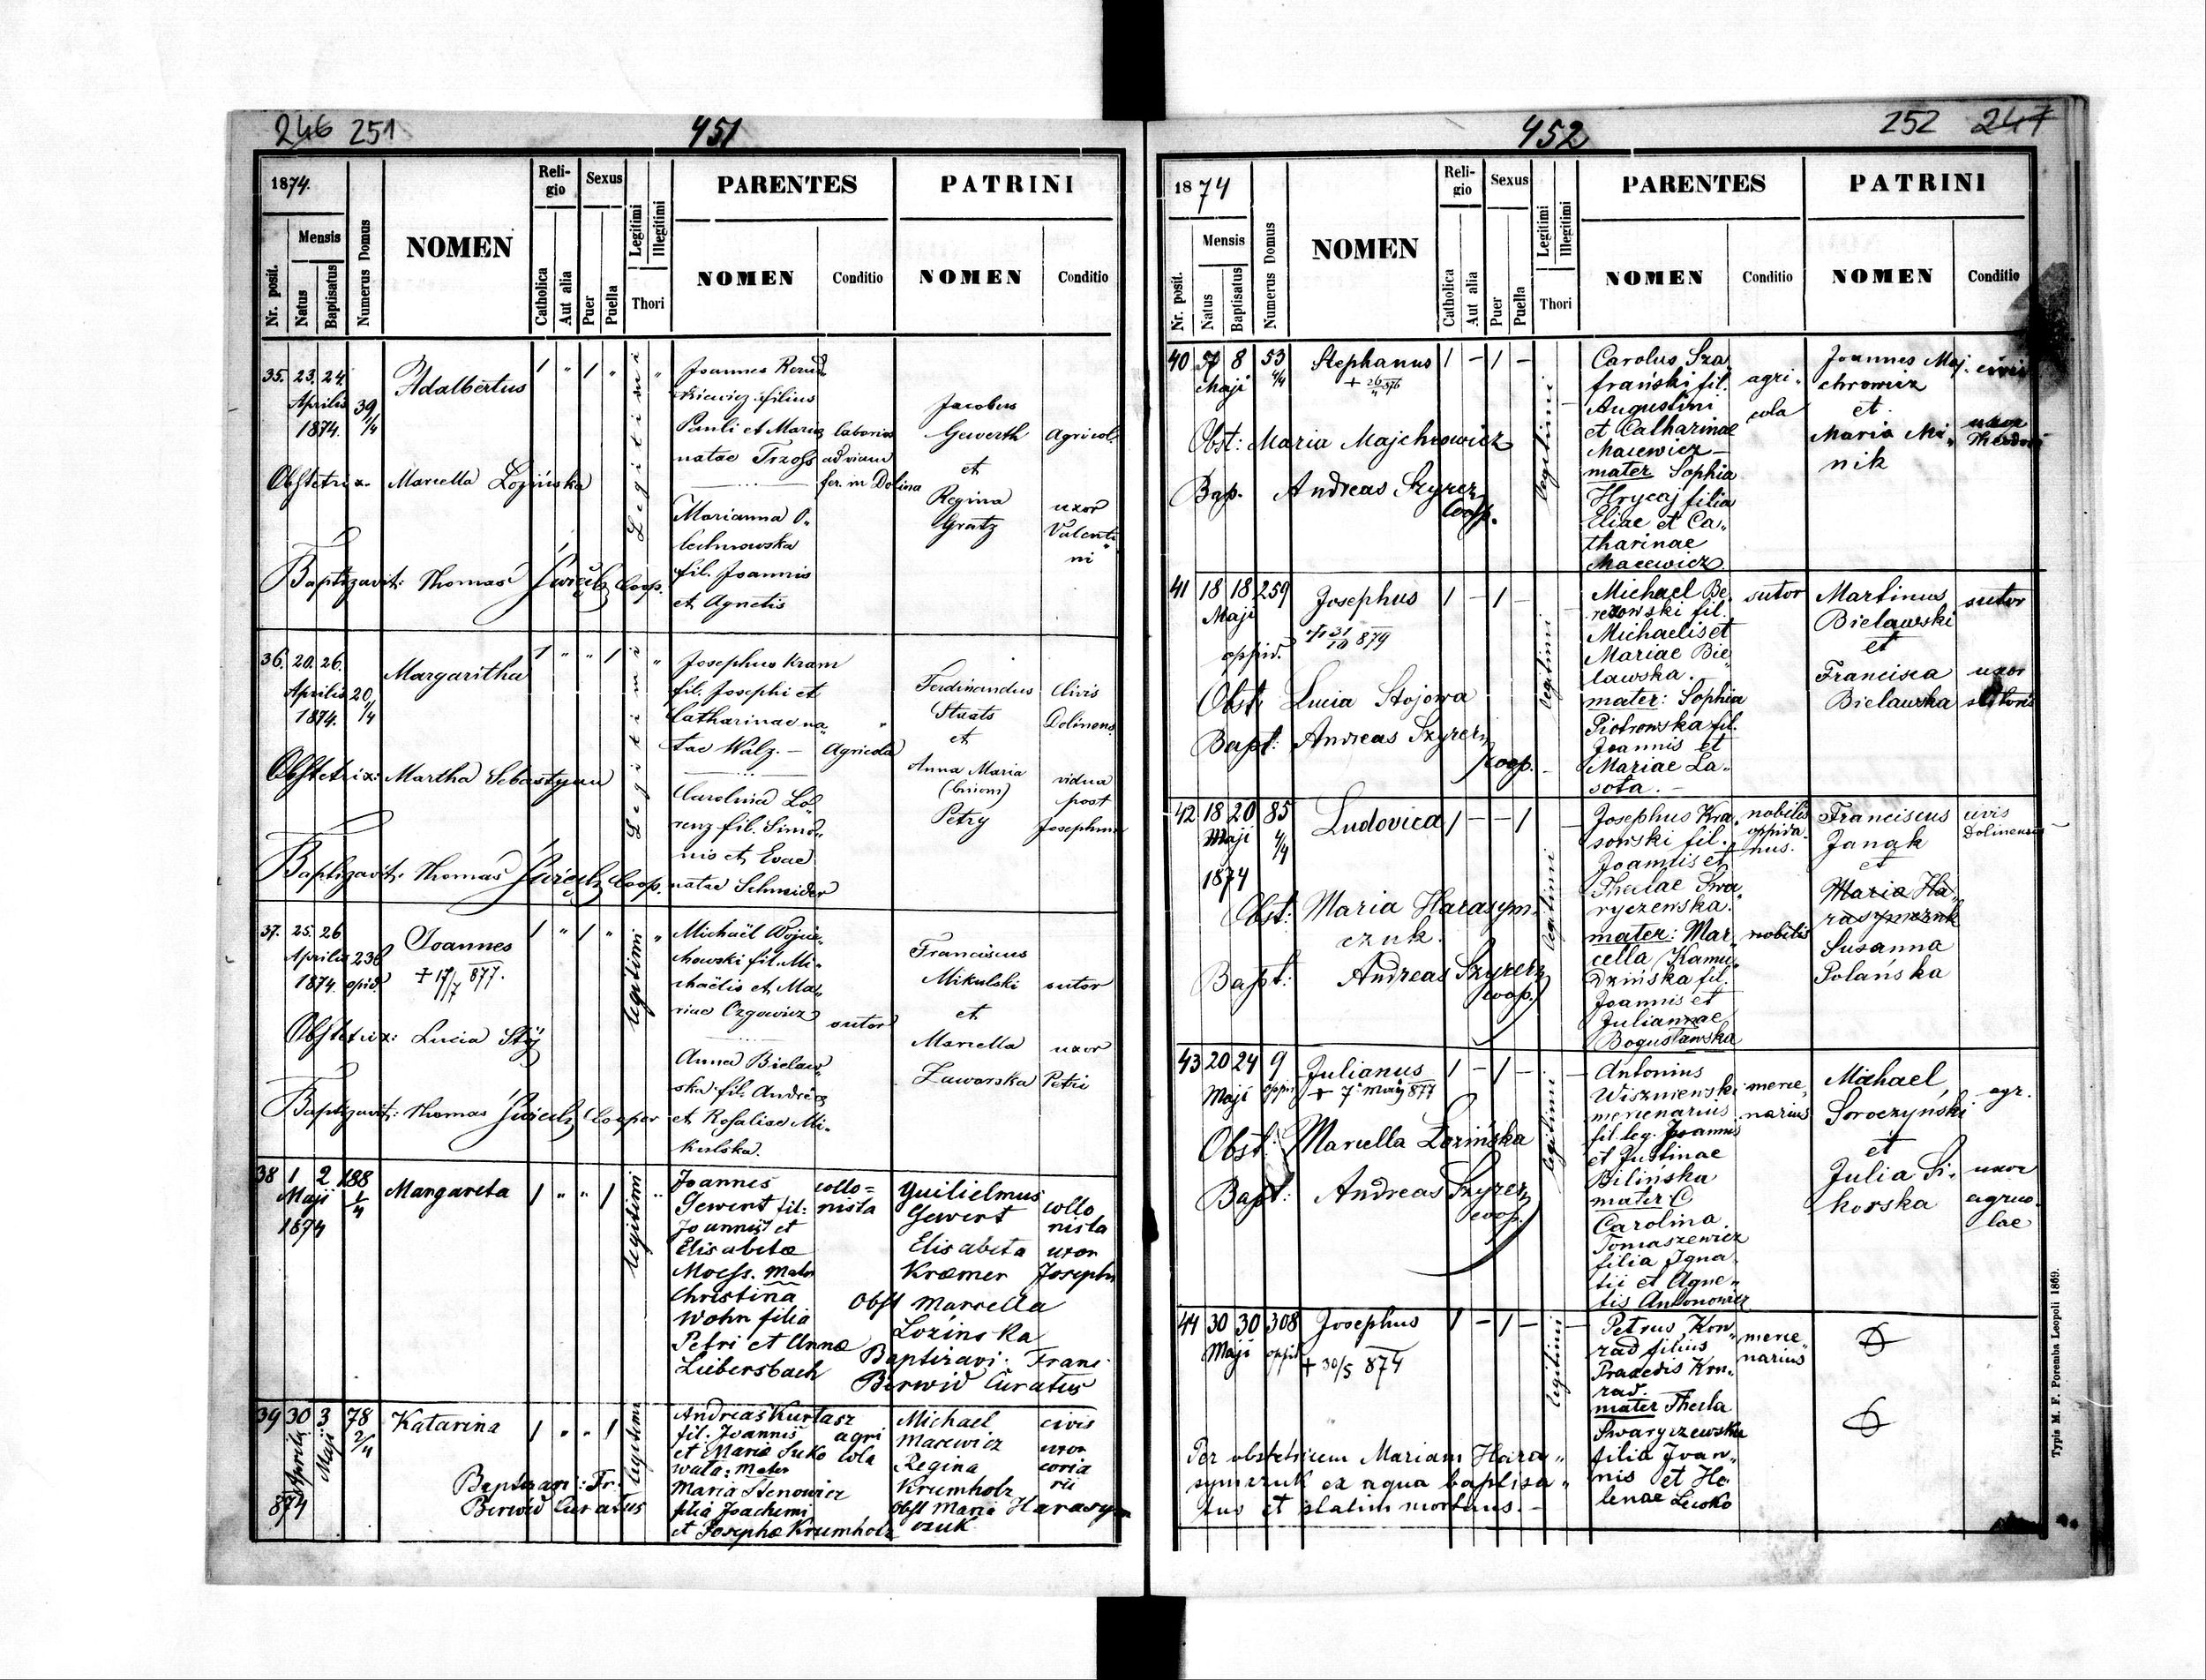 246 251
451
1874.
Nr. posit.
Mensis
Natus
Baptisatus
Numerus Domus
NOMEN
Religio
Catholica
Aut alia
Sexus
Puer
Puella
Legitimi
Illegitimi
Thori
PARENTES
NOMEN
Conditio
PATRINI
NOMEN
Conditio
35. 23. 24.
Aprilis
1874.
39
1/4
Adalbertus
1 " 1 "
Legitimi
"
Joannes
kiewicz filius
Pauli et Maria
natae Trzoss
Marianna O„
lechnowska
fil. Joannis
et Agnetis
laborios
ad viam
fer. in Dolina
Jacobus
Gewerth
et
Regina
Gratz
Agricol.
uxor
Valenti„
ni
Obstetrix. Marcella Łozińska
Baptizavit: Thomas Coop.
36. 20. 26.
Aprilis
1874.
20
1/4
Margaritha
1 " " 1
Legitimi
"
Josephus Kram
fil. Josephi et
Catharinae na„
tae Walz. —
Carolina Lo„
renz fil. Simo„
nis et Evae
natae Schneider
Agricola
Ferdinandus
Staats
et
Anna Maria
(binom)
Petry
Civis
Dolinens.
vidua
post
Josephum
Obstetrix: Martha Sebastyan
Baptizavit: Thomas Coop.
37. 25. 26
Aprilis
1874.
238
opid.
Joannes
+ 17/7 877.
1 " 1 "
legitimi
"
Michaël Wojcie„
chowski fil. Mi„
chaëlis et Ma„
riae Ozgowicz
Anna Bielaw„
ska fil. Andreae
et Rosaliae Mi„
kulska.
sutor
Franciscus
Mikulski
et
Marcella
Zaworska
sutor
uxor
Petri
Obstetrix: Lucia Stój
Baptizavit: Thomas Cooper
38 1 2 188
Maji 1/4
1874
Margareta
1 " " 1
legitimi
"
Joannes
Gewert fil:
Joannis et
Elisabetae
Moess. Mater
Christina
Wohn filia
Petri et Annae
Liebersbach
collo=
nista
Guilielmus
Gewert
Elisabeta
Kraemer
collo
nista
uxor
Josephi
Obst Marcella
Lozinska
Baptizavi: Franc.
Berwid Curatus
39 30 3 78
Aprilis Maji 2/4
874
Katarina
1 " " 1
legitimi
Andreas Kurtasz
fil. Joannis
et Maria Suko
wata: Mater
Maria Stenowicz
filia Joachemi
et Josephae Krumholz
agri
cola
Michael
Macewicz
Regina
Krumholz
civis
uxor
coria
rii
Obst Maria Harasym
czuk
Baptizavi: Fr.
Berwid Curatus
452
252 247
1874
Nr. posit.
Mensis
Natus
Baptisatus
Numerus Domus
NOMEN
Religio
Catholica
Aut alia
Sexus
Puer
Puella
Legitimi
Illegitimi
Thori
PARENTES
NOMEN
Conditio
PATRINI
NOMEN
Conditio
40 7 8 53
Maji 4/4
Stephanus
1 – 1 –
legitimi
Carolus Sza„
frański fil.
Augustini
et Catharinae
Macewicz —
mater Sophia
Hrycaj filia
Eliae et Ca„
tharinae
Macewicz.
agri„
cola
Joannes Maj„
chrowicz
et
Maria Mi„
nik
civis
uxor
Obst: Maria Majchrowicz
Bap. Andreas Szyrerz
Coop.
41 18 18 259
Maji
oppid.
Josephus
+ 31/10 879
1 – 1 –
legitimi
Michael Be„
rezowski fil.
Michaelis et
Mariae Bie„
lawska.
mater: Sophia
Piotrowska fil.
Joannis et
Mariae La„
sota. —
sutor
Martinus
Bielawski
et
Francisca
Bielawska
sutor
uxor
sutoris
Obst: Lucia Stojowa
Bapt: Andreas Szyrerz
Coop.
42 18 20 85
Maji 4/4
1874
Ludovica
1 – – 1
legitimi
Josephus Kra„
sowski fil.
Joannis et
Theclae Swa„
ryczewska.
mater: Mar„
cella Kamie„
dzińska fil.
Joannis et
Juliannae
Bogusławska
nobilis
oppida„
nus.
nobilis
Franciscus
Janak
et
Maria Ha„
rasymczuk
Susanna
Polańska
civis
Dolinensis
Obst: Maria Harasym„
czuk.
Bapt: Andreas Szyrerz
Coop.
43 20 24 9
Maji oppid
Julianus
+ 7 Maji 877
1 – 1 –
legitimi
Antonius
Wiszniewski
mercenarius
fil. leg. Joannis
et Justinae
Bilińska
mater C
Carolina
Tomaszewicz
filia Igna„
tii et Agne„
tis Antonowicz
merce„
narius
Michael
Soroczyński
et
Julia Si„
korska
agr.
uxor
agrico„
lae
Obst: Marcella Łozińska
Bapt: Andreas Szyrerz
Coop.
44 30 30 308
Maji oppid
Josephus
+ 30/5 874
1 – 1 –
legitimi
Petrus Kon„
rad filius
Praxedis Kon„
rad.
mater Thecla
Swaryczewska
filia Joan„
nis et He„
lenae Lesko
merce„
narius
Per obstetricem Mariam Hara„
symczuk ex aqua baptisa„
tus et statim mortuus. —
Typis M. F. Poremba Leopoli 1869.